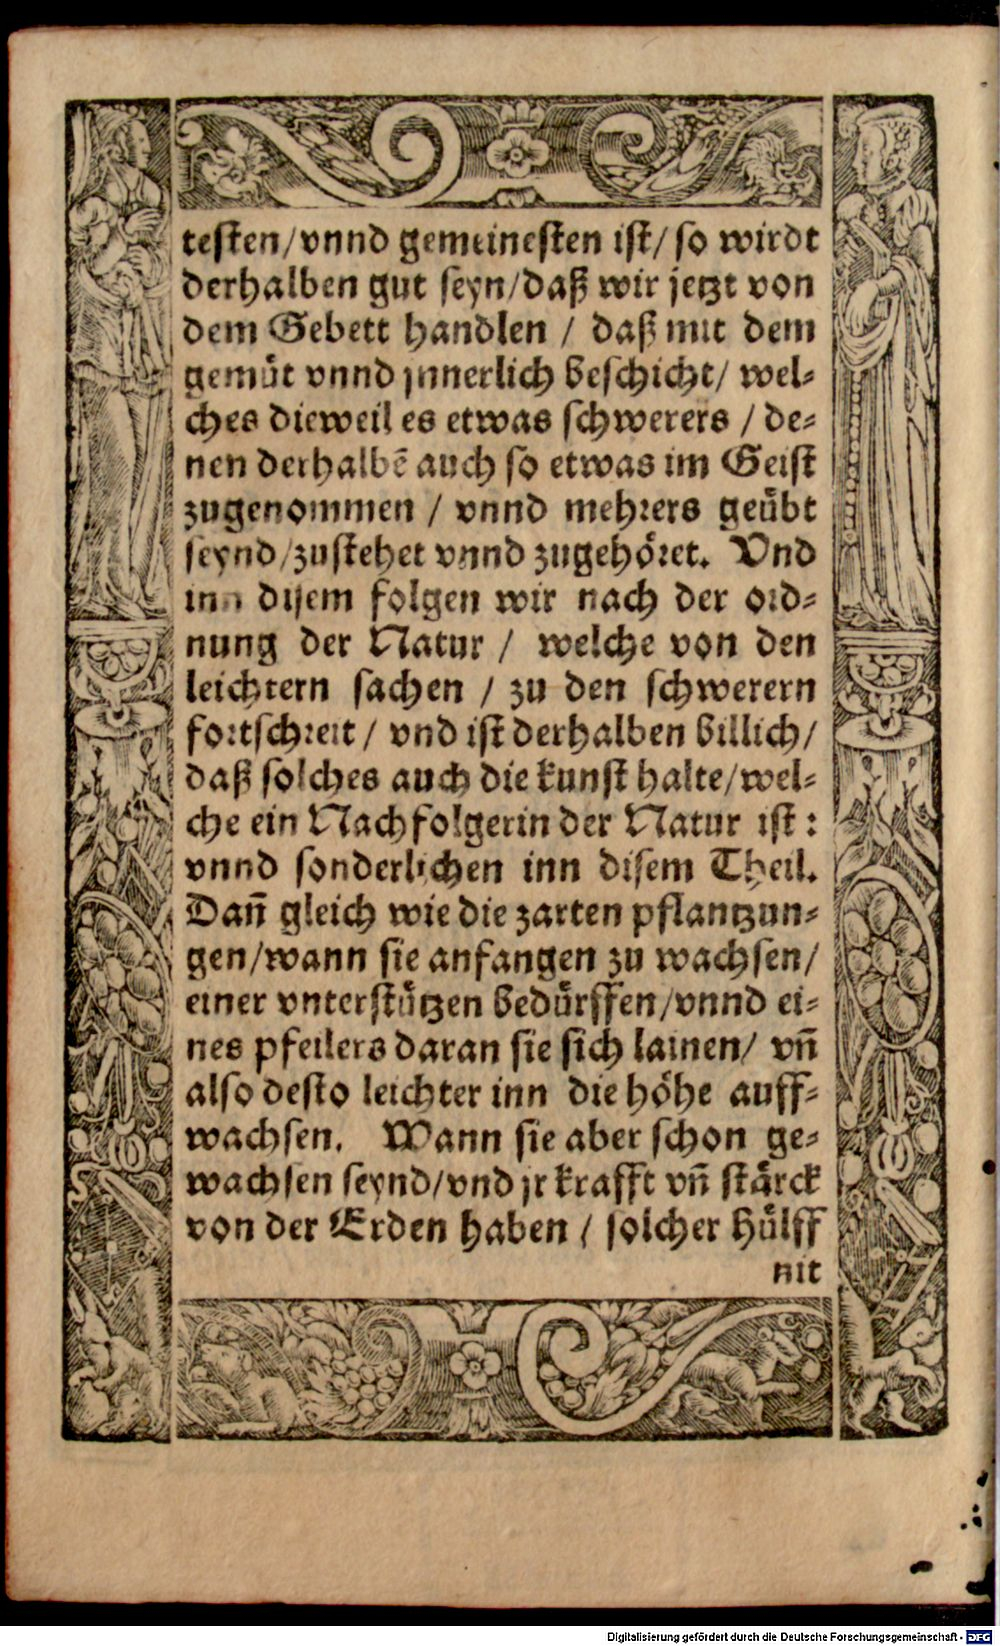 testen/vnnd gemeinesten ist/ so wirdt
derhalben gut seyn/daß wir jetzt von
dem Gebett handlen / daß mit dem
gemüt vnnd jnnerlich beschicht/ wel⸗
ches dieweil es etwas schwerers / de⸗
nen derhalbē auch so etwas im Geist
zugenommen / vnnd mehrers geübt
seynd/zustehet vnnd zugehöret. Vnd
inn disem folgen wir nach der ord⸗
nung der Natur / welche von den
leichtern sachen / zu den schwerern
fortschreit / vnd ist derhalben billich/
daß solches auch die kunst halte/wel⸗
che ein Nachfolgerin der Natur ist :
vnnd sonderlichen inn disem Theil.
Dañ gleich wie die zarten pflantzun⸗
gen/wann sie anfangen zu wachsen/
einer vnterstützen bedürffen/vnnd ei⸗
nes pfeilers daran sie sich lainen/ vñ
also desto leichter inn die höhe auff⸗
wachsen. Wann sie aber schon ge⸗
wachsen seynd/vnd jr krafft vñ stärck
von der Erden haben / solcher hülff
nit
Digitalisierung gefördert durch die Deutsche Forschungsgemeinschaft - DFG